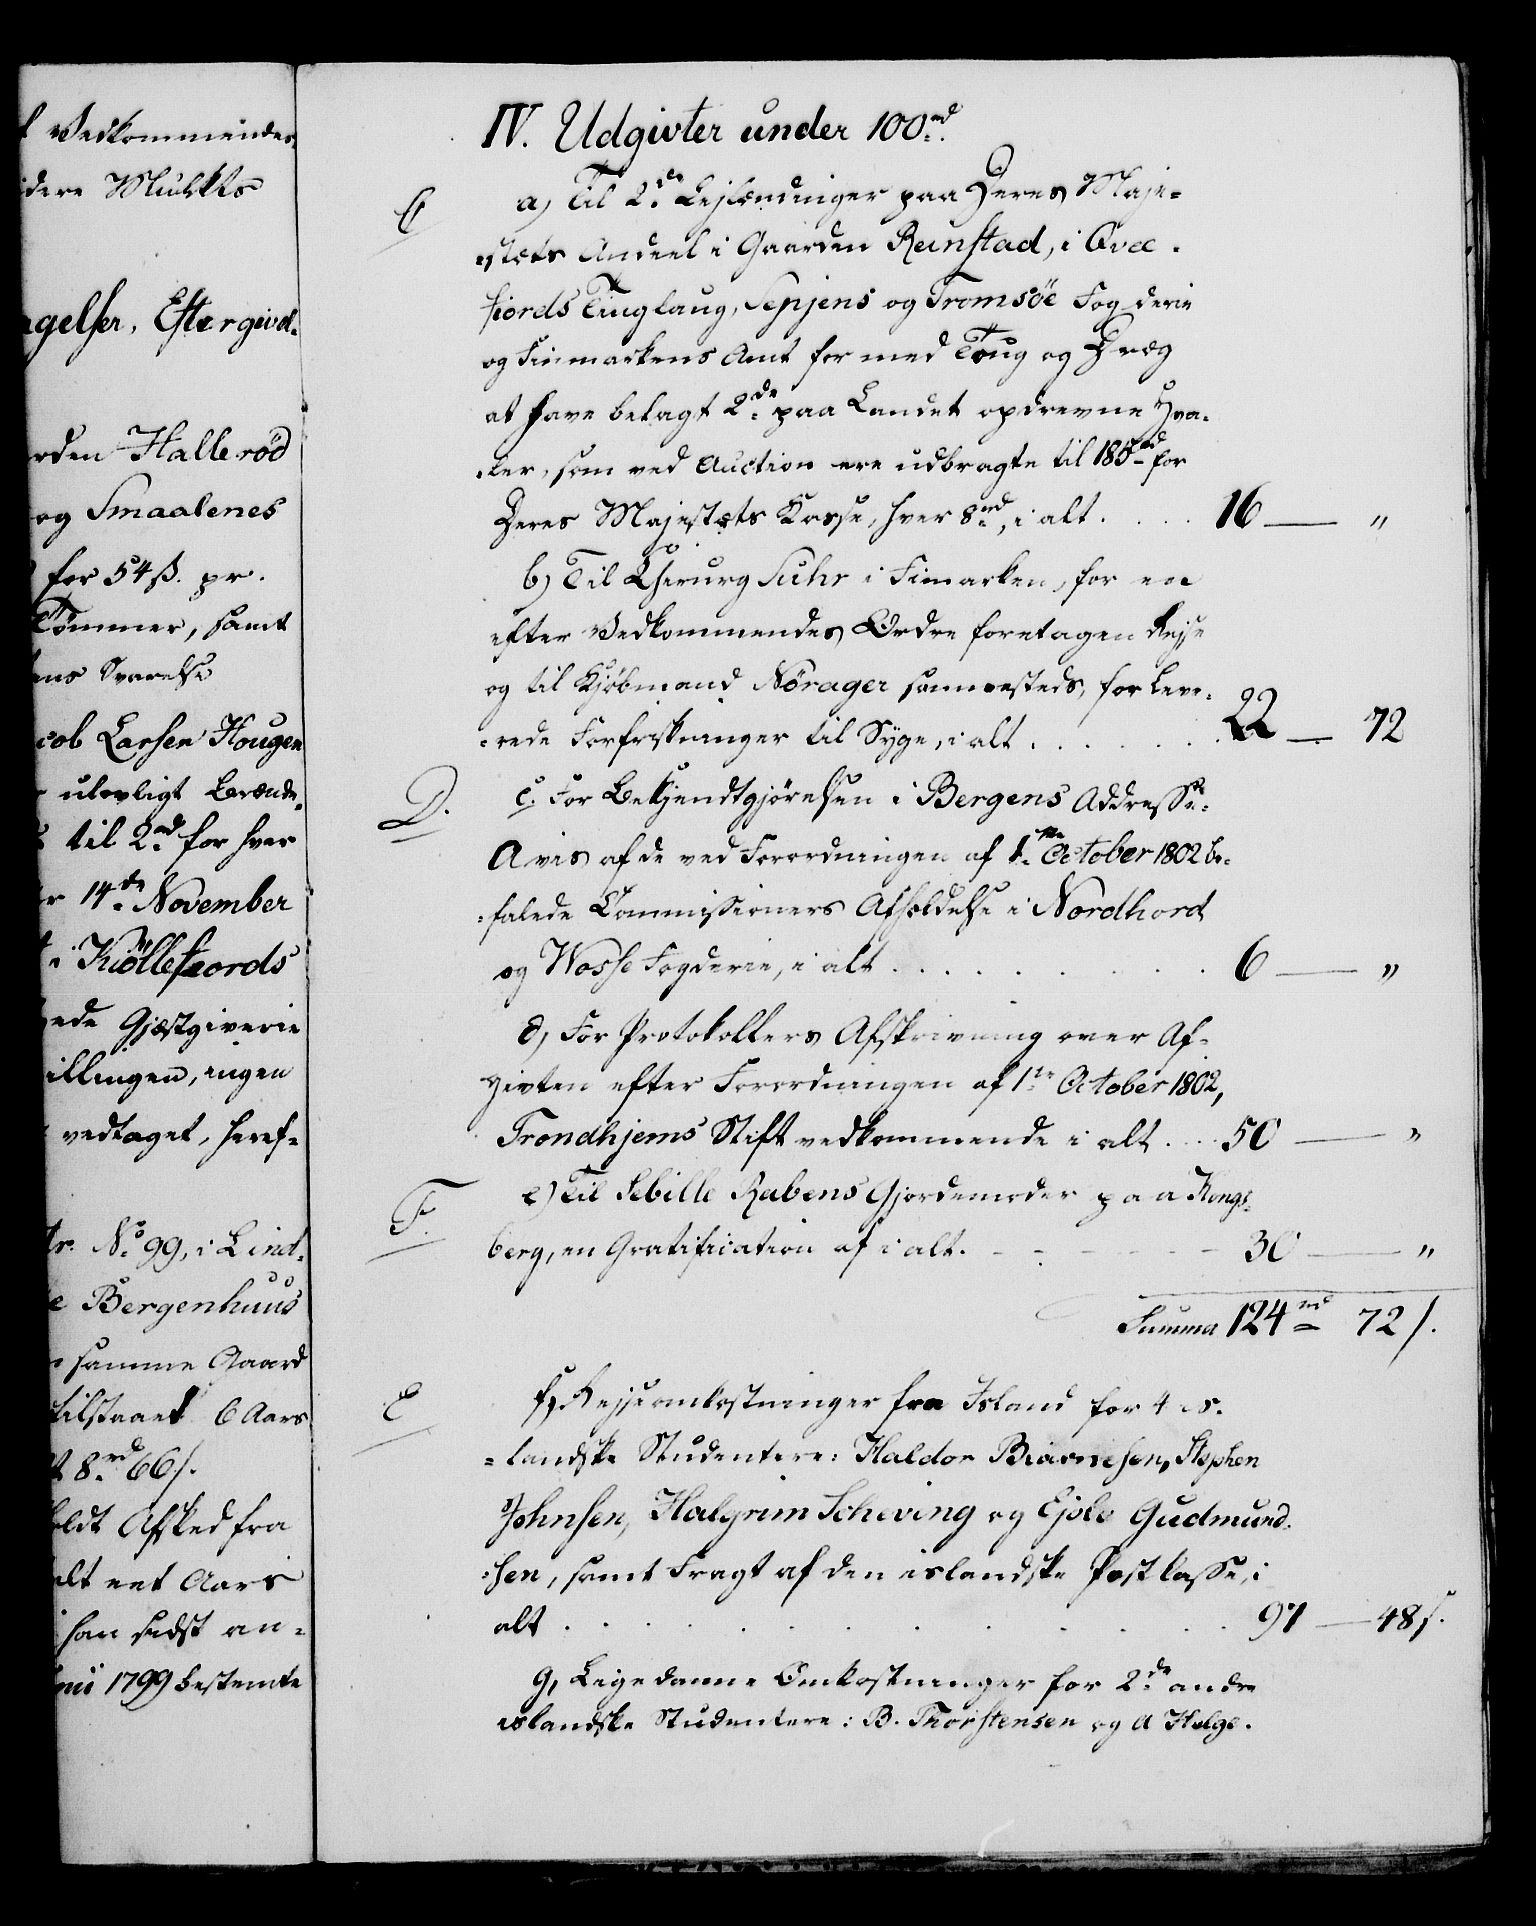 t Vedkommendes
idere Mulkts
gelser, Eftergivel-
rden Halleröd
og Smaalenes
for 54 ß. pr.
Tømmer, samt
ens Svarelse
cob Larsen Hougen
ulovligt Brænde-
til 2 rd for hver
r 14de November
i Kiöllefiords
ede Gjæstgiverie
illingen, ingen
vedtaget, heref-
tr. No 99, i Lind-
e Bergenhuus
samme Gaard
tilstaaet 6 Aars
8 rd 66 s.
oldt Afsked fra
alt eet Aars
han sidst an-
nii 1799 bestemte
IV. Udgivter under 100 rd.
C
a) Til 2de Lejlændinger paa Deres Maje-
-stæts Andeel i Gaarden Reinstad, i Qvæ-
fiords Tinglaug, Senjens og Tromsöe Fogderie
og Finmarkens Amt for med Toug og Dræg
at have belagt 2de paa Landet opdrevne Hva-
-ler, som ved Auction ere udbragte til 185 rd for
Deres Majestæts Kasse, hver 8 rd, i alt . . . . 16 — "
b) Til Chirurg Suhr i Finmarken, for en
efter Vedkommendes Ordre foretagen Rejse
og til Kjöbmand Nörager sammesteds, for leve-
-rede Forfriskninger til Syge, i alt . . . . . . 22 — 72
D.
c. For Bekjendtgjörelsen i Bergens Addresse-
Avis af de ved Forordningen af 1te October 1802 be-
-falede Commissioners Afholdelse i Nordhord
og Vosse Fogderie, i alt . . . . . . . . 6 — "
d) For Protokollers Afskrivning over Af-
givten efter Forordningen af 1te October 1802,
Trondhjems Stift vedkommende i alt . . . 50 — "
F.
e) Til Sebille Rabens Gjordemoder paa Kongs-
berg, en Gratification af i alt. - - - - - 30 — "
Summa 124 rd 72 s.
E
f) Rejseomkostninger fra Island for 4 is-
-landske Studentere: Haldor Biarnesen, Stephen
Johnsen, Halgrim Scheving og Ejolv Gudmund-
-sen, samt Fragt af den islandske Postkasse, i
alt . . . . . . . . . . . 97 — 48 s.
g, Ligedanne Omkostninger for 2de andre
islandske Studentere: B. Thorstensen og A Helge-